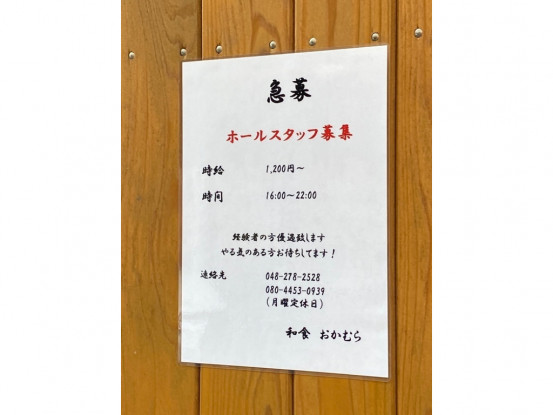 急募
ホールスタッフ募集
時給 1,200円～
時间 16:00～22:00
経験者の方優遇致します
やる気のある方お待ちしてます！
連絡先 048-278-2528
080-4453-0939
(月曜定休日)
和食 おかむら